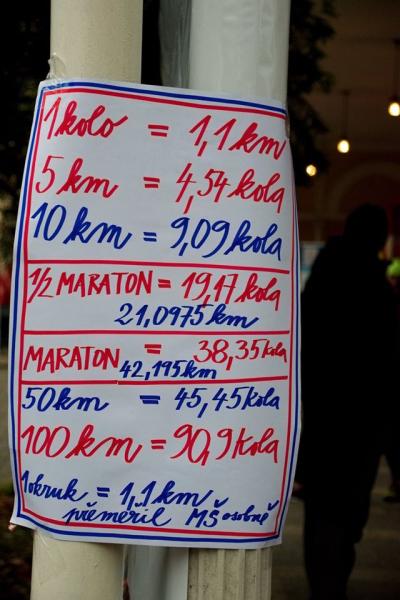 1 kolo = 1,1 km
5 km = 4,54 kola
10 km = 9,09 kola
1/2 MARATON = 19,17 kola
21,0975 km
MARATON = 38,35 kola
42,195 km
50 km = 45,45 kola
100 km = 90,9 kola
1 okruk = 1,1 km
přeměřil MŠ osobně